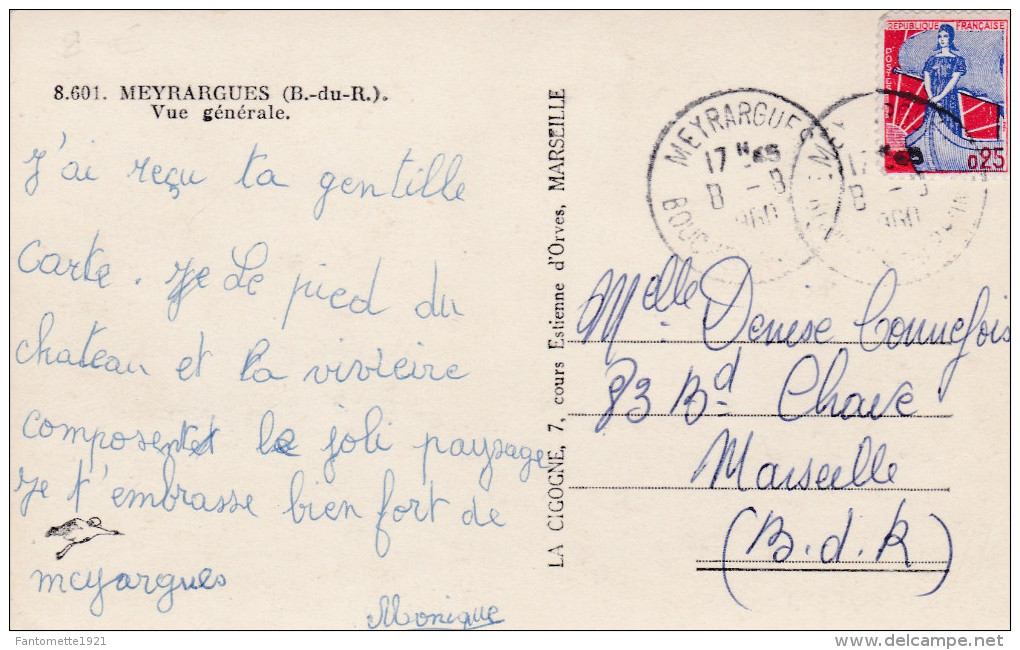 8.601. MEYRARGUES (B.-du-R.).
Vue générale.
J'ai reçu ta gentille
carte. Je Le pied du
chateau et la vivieire
composent le joli paysage
Je t'embrasse bien fort de
meyargues
Monique
LA CIGOGNE, 7, cours Estienne d'Orves, MARSEILLE
REPUBLIQUE FRANÇAISE
POSTES
0,25
MEYRARGUES
17 H 45
8 - 8
960
BOUC
Melle Denise Connefois
83 Bd Chave
Marseille
(B.d.R)
Fantomette1921
delcampe.net